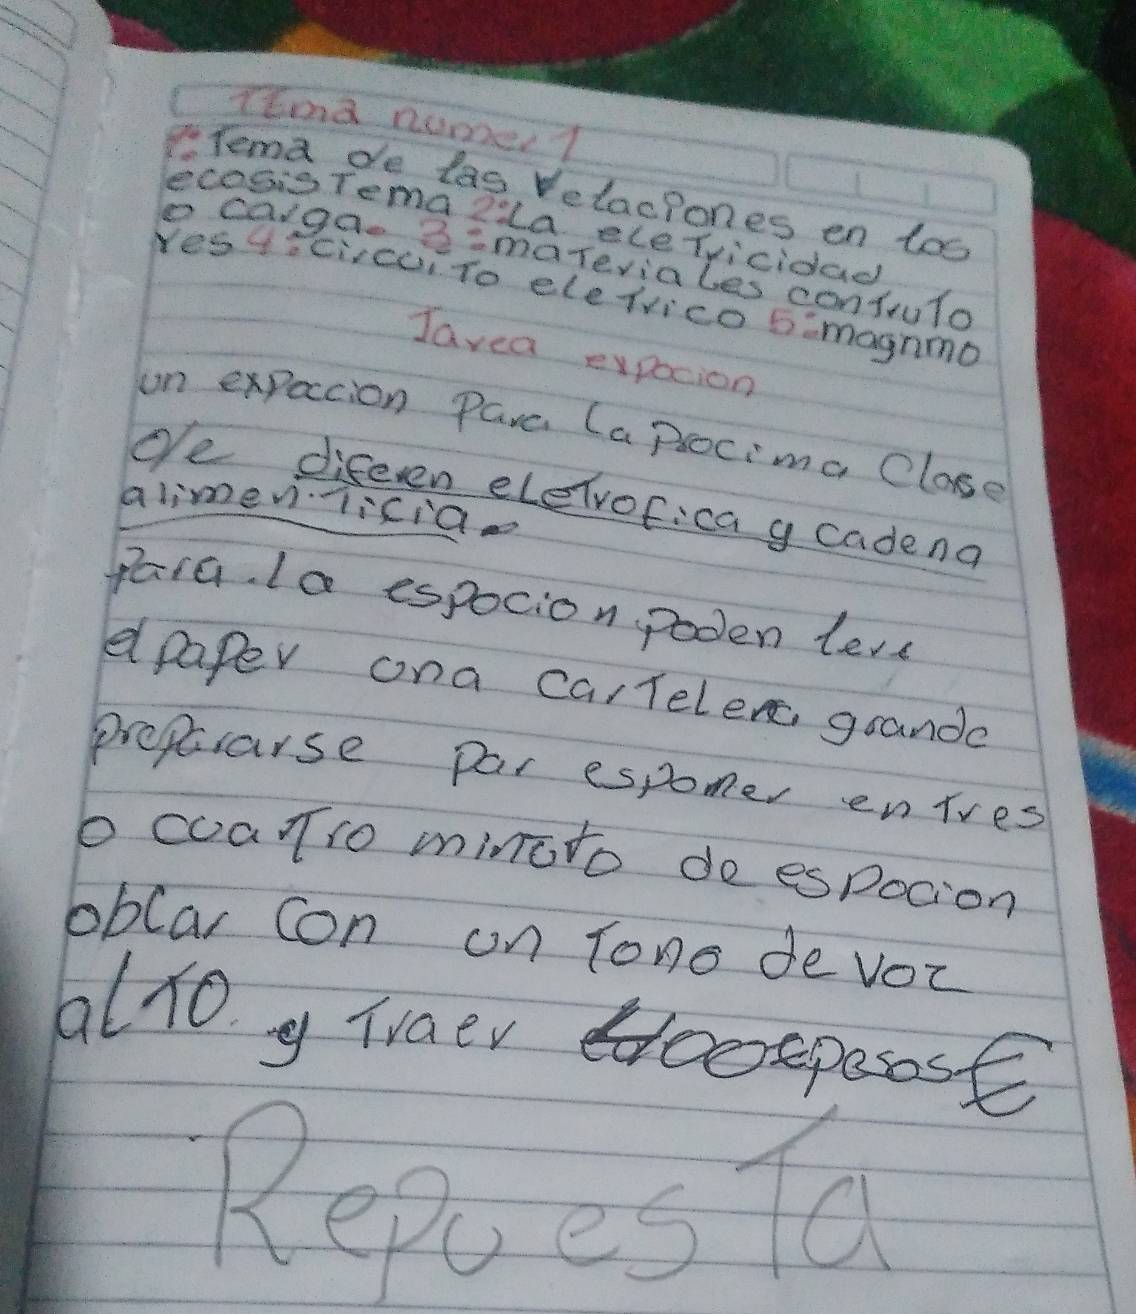 Tema numer 1
1: Tema de las relaciones en los
ecosisTema 2: La eleTricidad
o carga. 3: maTeriales conTruTo
res 4: circuiTo eleTrico 5: magnmo
Tarea expocion
un expoccion Para la Procima Clase
de diferen eletrofica y cadena
alimenTicia.
Para la espocion poden leve
el paper una carTelera grande
prepararse par esponer en Tres
o cuaTro minuto de espocion
oblar con un Tono de voz
alTo y Traer pesos
RepuesTa